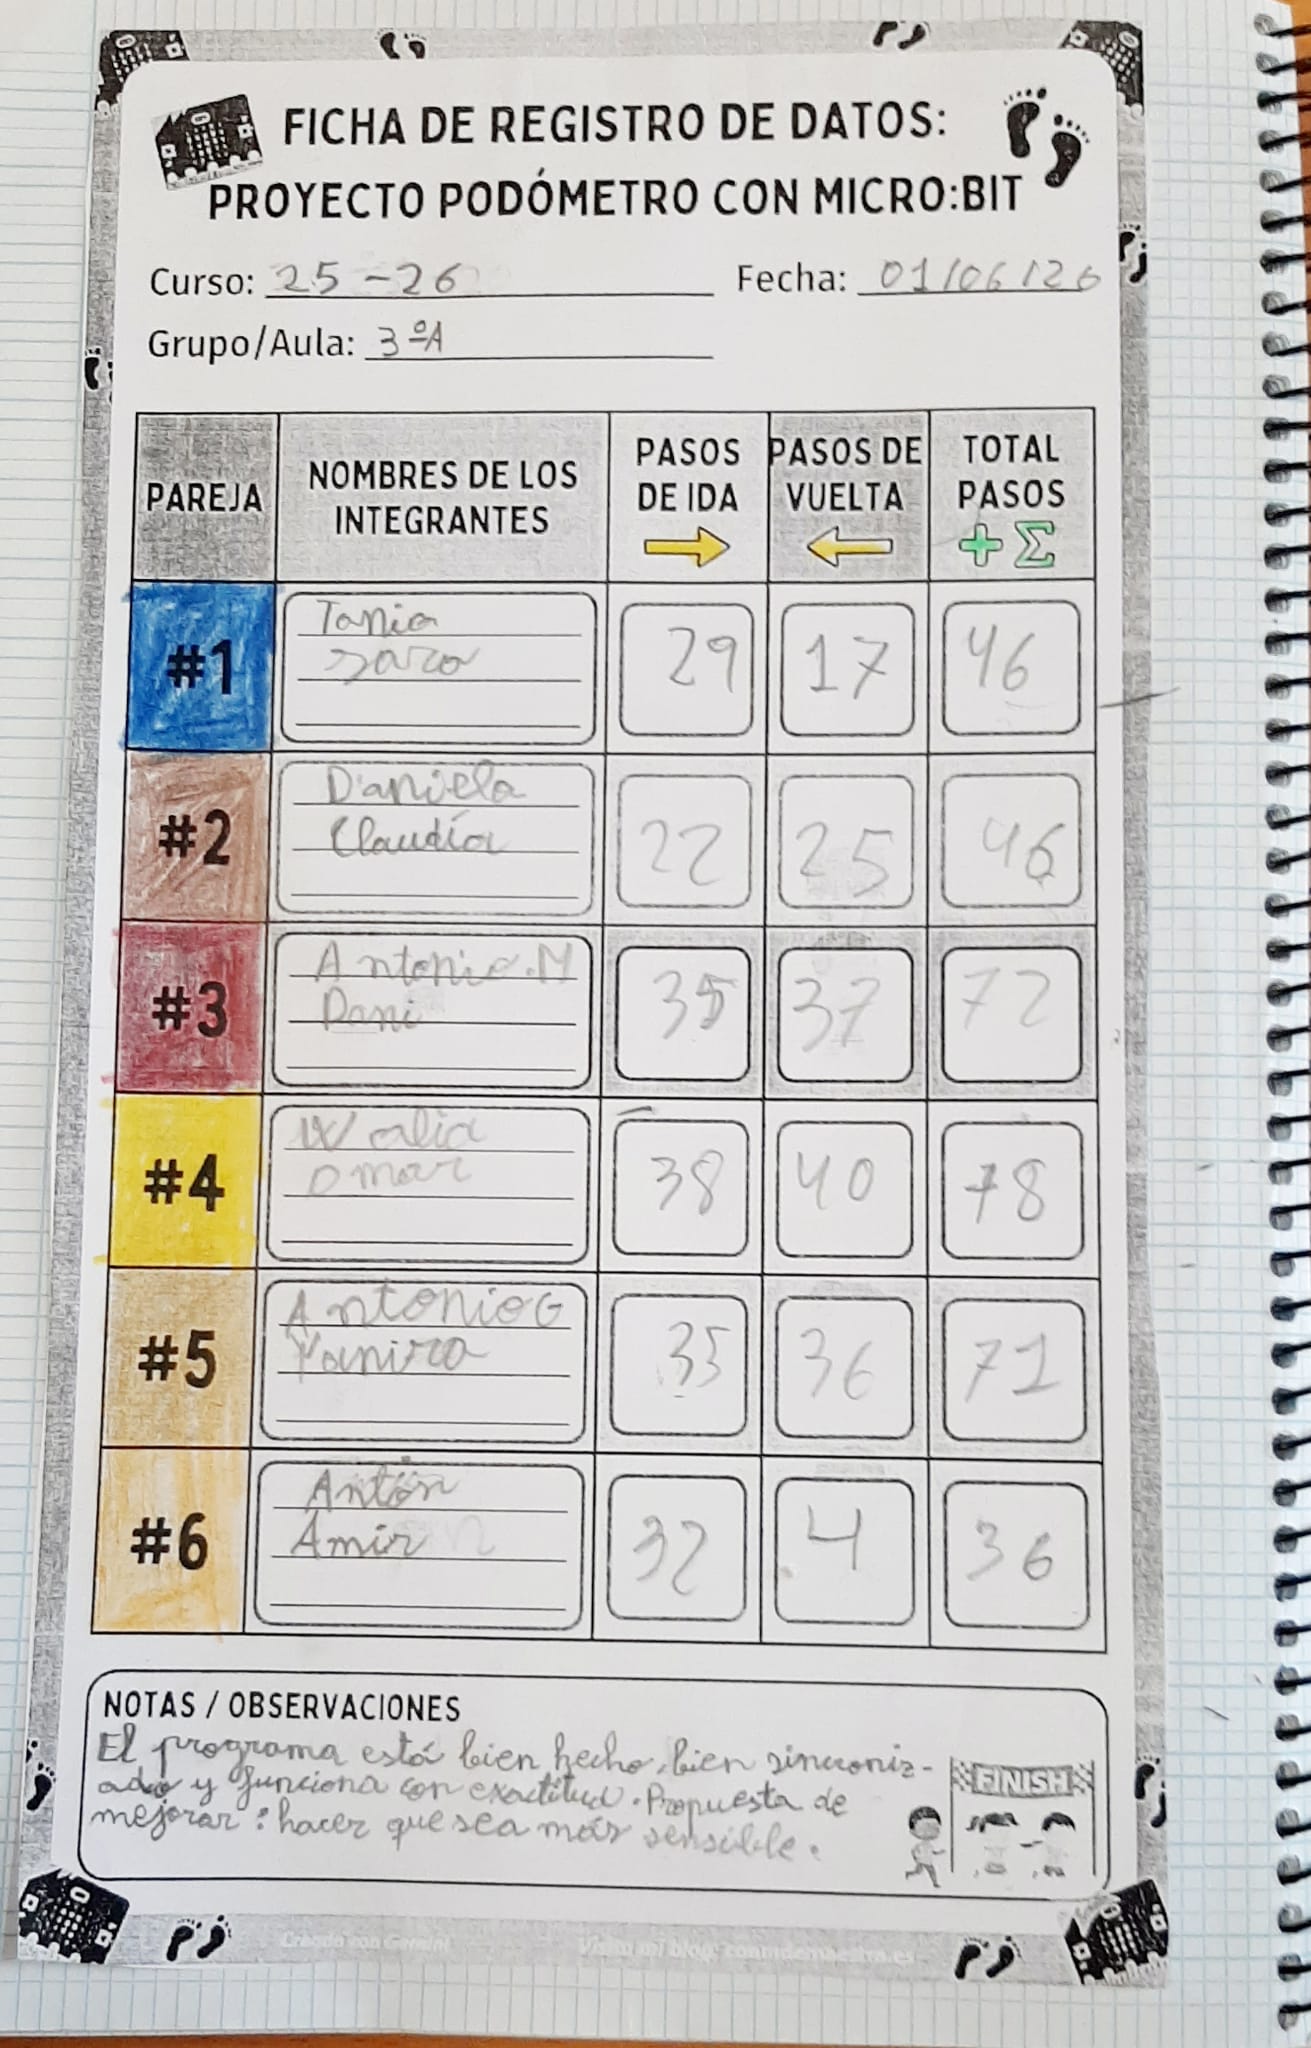 FICHA DE REGISTRO DE DATOS:
PROYECTO PODÓMETRO CON MICRO:BIT
Curso: 25-26 Fecha: 01/06/26
Grupo/Aula: 3ºA
PAREJA NOMBRES DE LOS INTEGRANTES PASOS DE IDA PASOS DE VUELTA TOTAL PASOS
#1 Tania 29 17 46
Sara
#2 Daniela 22 25 46
Claudía
#3 Antonio.M 35 37 72
Dani
#4 Walid 38 40 78
Omar
#5 Antonio G 35 36 71
Yanira
#6 Antón 32 4 36
Amir
NOTAS / OBSERVACIONES
El programa está bien hecho, bien sincroniz-
ado y funciona con exactitud. Propuesta de
mejorar: hacer que sea más sensible.
FINISH
Creado con Gemini Visita mi blog: conmdemaestra.es